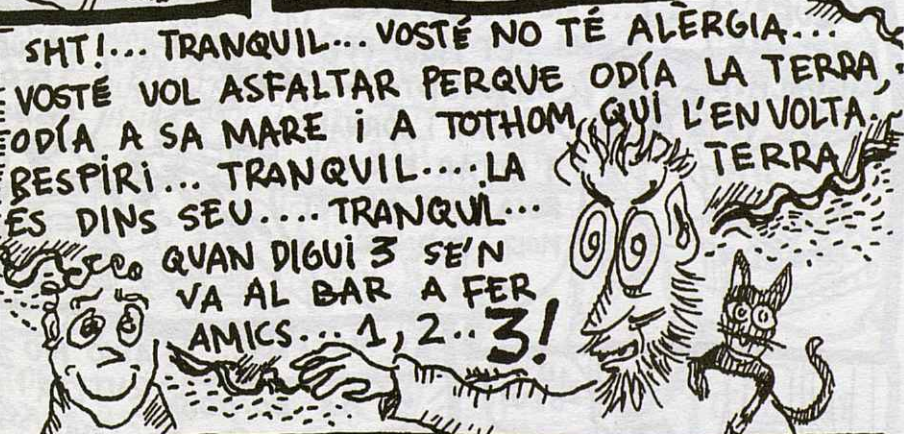 SHT!... TRANQUIL... VOSTÉ NO TÉ ALÈRGIA...
VOSTÉ VOL ASFALTAR PERQUE ODÍA LA TERRA,
ODÍA A SA MARE i A TOTHOM QUI L'ENVOLTA..
RESPIRI... TRANQUIL.... LA TERRA
ÉS DINS SEU.... TRANQUIL...
QUAN DIGUI 3 SE'N
VA AL BAR A FER
AMICS... 1, 2.. 3!